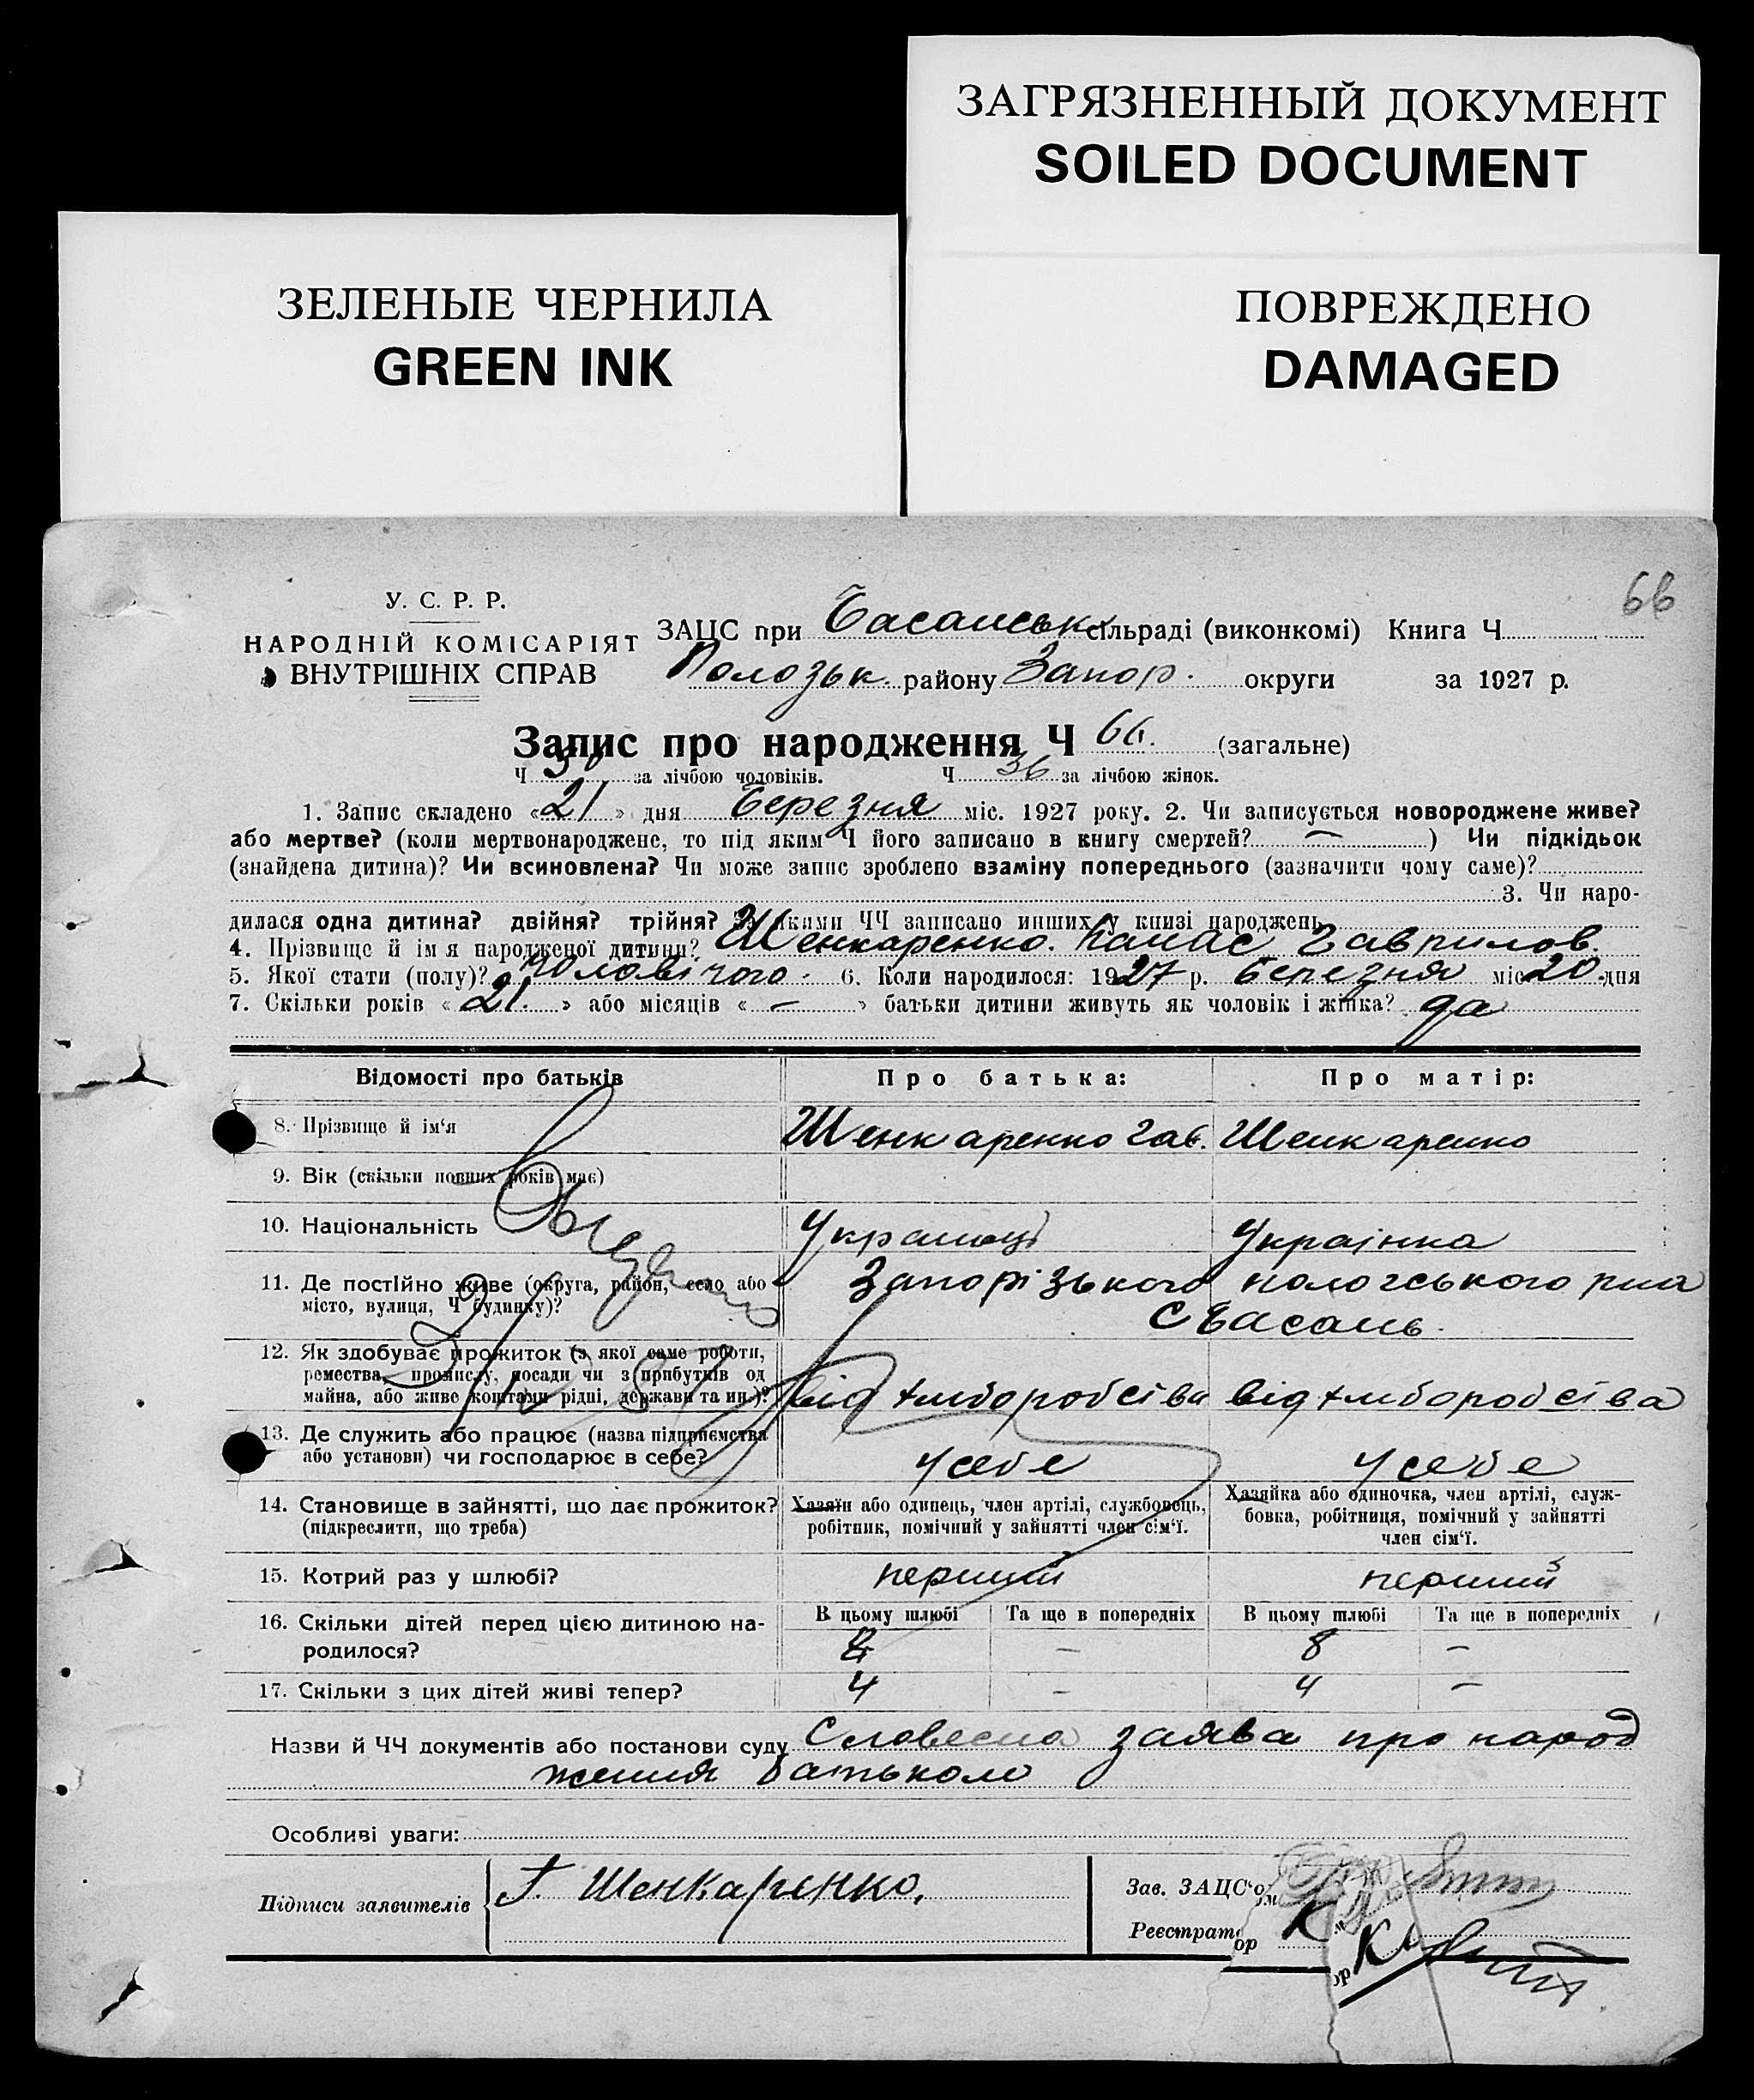 ЗАГРЯЗНЕННЫЙ ДОКУМЕНТ
SOILED DOCUMENT
ЗЕЛЕНЫЕ ЧЕРНИЛА
GREEN INK
ПОВРЕЖДЕНО
DAMAGED
66
У. С. Р. Р.
НАРОДНІЙ КОМІСАРІЯТ
ВНУТРІШНІХ СПРАВ
ЗАЦС при Басанськ сільраді (виконкомі) Книга Ч
Полозьк. району Запор. округи за 1927 р.
Запис про народження Ч 66. (загальне)
Ч 30 за лічбою чоловіків. Ч 36 за лічбою жінок.
1. Запис складено «21» дня березня міс. 1927 року. 2. Чи записується новороджене живе?
або мертве? (коли мертвонароджене, то під яким Ч його записано в книгу смертей? — ) Чи підкідьок
(знайдена дитина)? Чи всиновлена? Чи може запис зроблено взаміну попереднього (зазначити чому саме)?
3. Чи наро-
дилася одна дитина? двійня? трійня? За якими ЧЧ записано инших у книзі народжень
4. Прізвище й ім я народженої дитини? Шенкаренко. Панас Гаврилов.
5. Якої стати (полу)? чоловічого. 6. Коли народилося: 1927 р. березня міс 20 дня
7. Скільки років «21.» або місяців « – » батьки дитини живуть як чоловік і жінка? да
Відомості про батьків Про батька: Про матір:
8. Прізвище й ім‘я Шенкаренко Гав. Шенкаренко
9. Вік (скільки повних років має)
10. Національність Українці Українка
11. Де постійно живе (округа, район, село або
місто, вулиця, Ч будинку)?
Запорізького пологського рна
с Басань.
12. Як здобуває прожиток (з якої саме роботи,
ремества, промислу, посади чи з прибутків од
майна, або живе коштами рідні, держави та ин.)?
від хліборобства від хліборобства
13. Де служить або працює (назва підприємства
або установи) чи господарює в себе?
у себе у себе
14. Становище в зайнятті, що дає прожиток?
(підкреслити, що треба)
Хазяїн або одинець, член артілі, службовець,
робітник, помічний у зайнятті член сім‘ї.
Хазяйка або одиночка, член артілі, служ-
бовка, робітниця, помічний у зайнятті
член сім‘ї.
15. Котрий раз у шлюбі? перший перший
16. Скільки дітей перед цією дитиною на-
родилося?
В цьому шлюбі Та ще в попередніх В цьому шлюбі Та ще в попередніх
8 – 8 –
17. Скільки з цих дітей живі тепер? 4 – 4 –
Назви й ЧЧ документів або постанови суду Словесна заява про народ
ження батьком
Особливі уваги:
Підписи заявителів Г. Шенкаренко.
Зав. ЗАЦС‘ом
Реєстратор